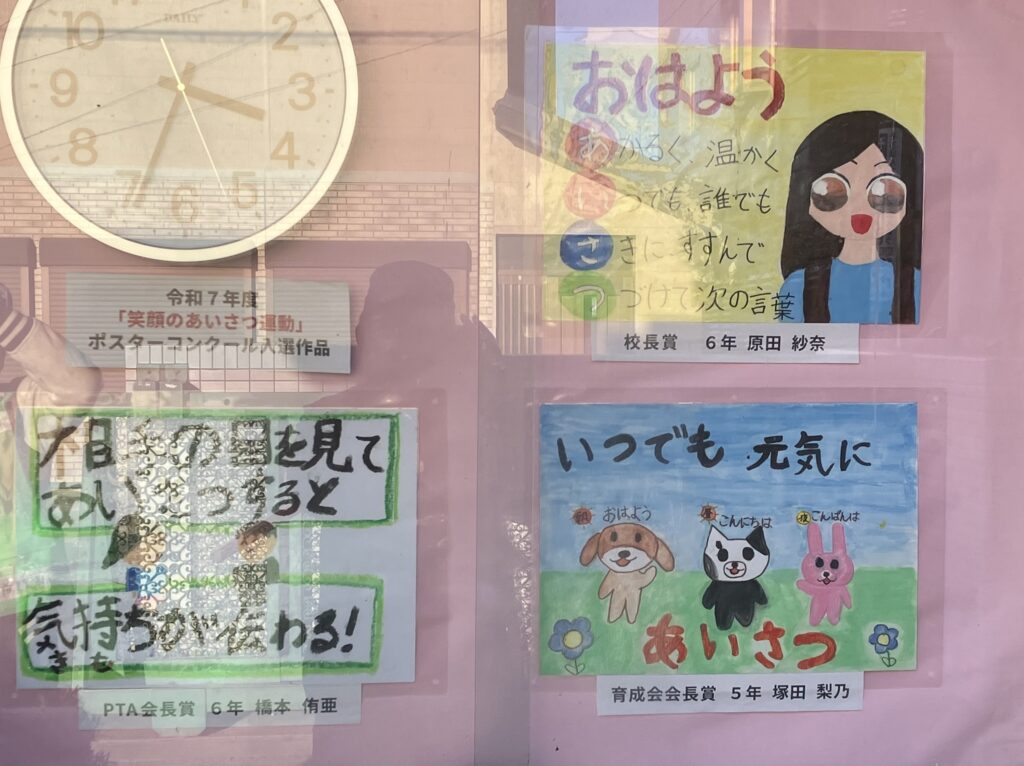 DAILY
10
2
9
3
8
4
7
6
5
令和7年度
「笑顔のあいさつ運動」
ポスターコンクール入選作品
おはよう
あかるく、温かく
いつでも、誰でも
さきに すすんで
つづけて次の言葉
校長賞 6年 原田 紗奈
の目を見て
あいさつすると
気持ちが伝わる!
きも
PTA会長賞 6年 橋本 侑亜
いつでも 元気に
朝 おはよう
昼 こんにちは
夜 こんばんは
あいさつ
育成会会長賞 5年 塚田 梨乃